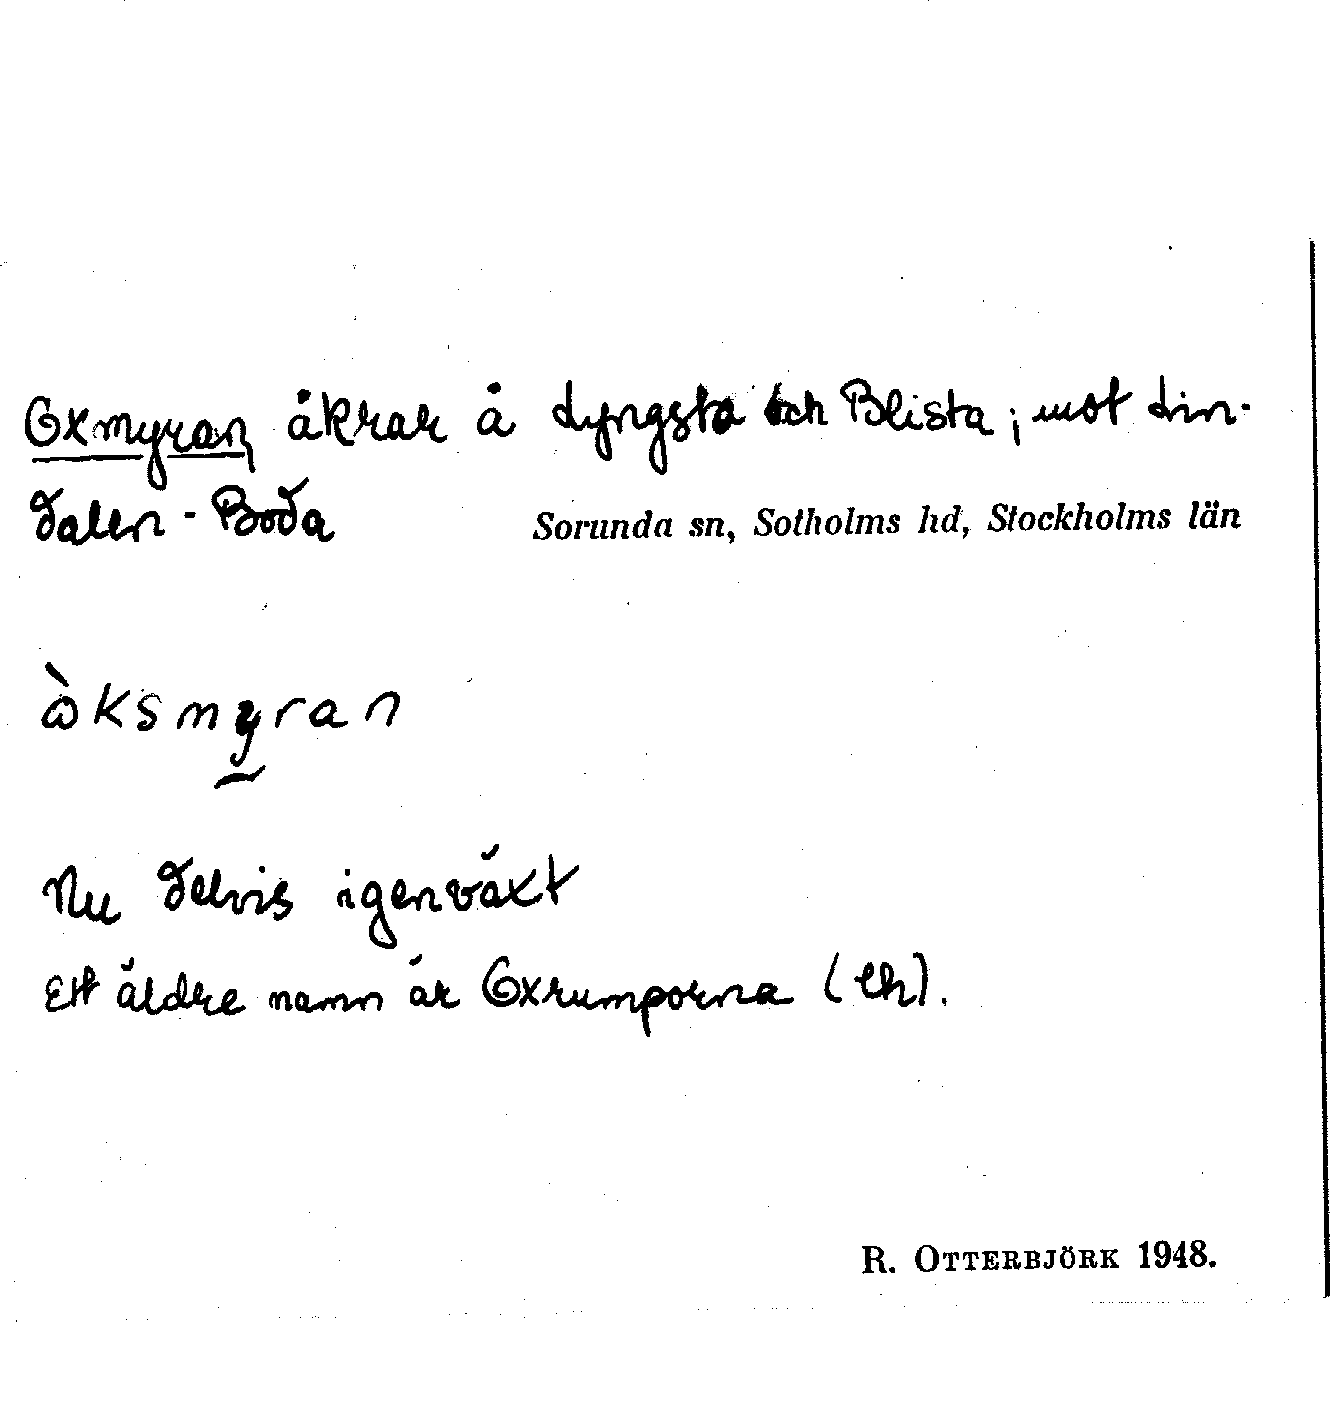 Oxmyran åkrar å Lyngsta och Blista; mot Lin-
dalen - Boda
Sorunda sn, Sotholms hd, Stockholms län
òksmyran
Nu delvis igenväxt
Ett äldre namn är Oxrumporna (Eh).
R. OTTERBJÖRK 1948.